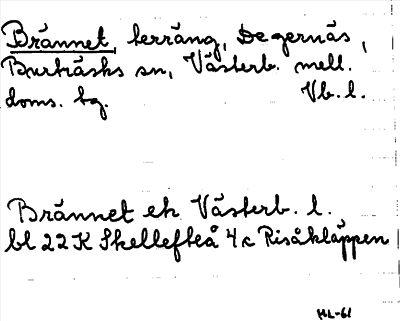 Brännet, terräng, Degernäs,
Burträsks sn, Västerb. mell.
doms. bg. Vb. l.
Brännet ek Västerb. l.
bl 22K Skellefteå 4c Risåkläppen
ML-61